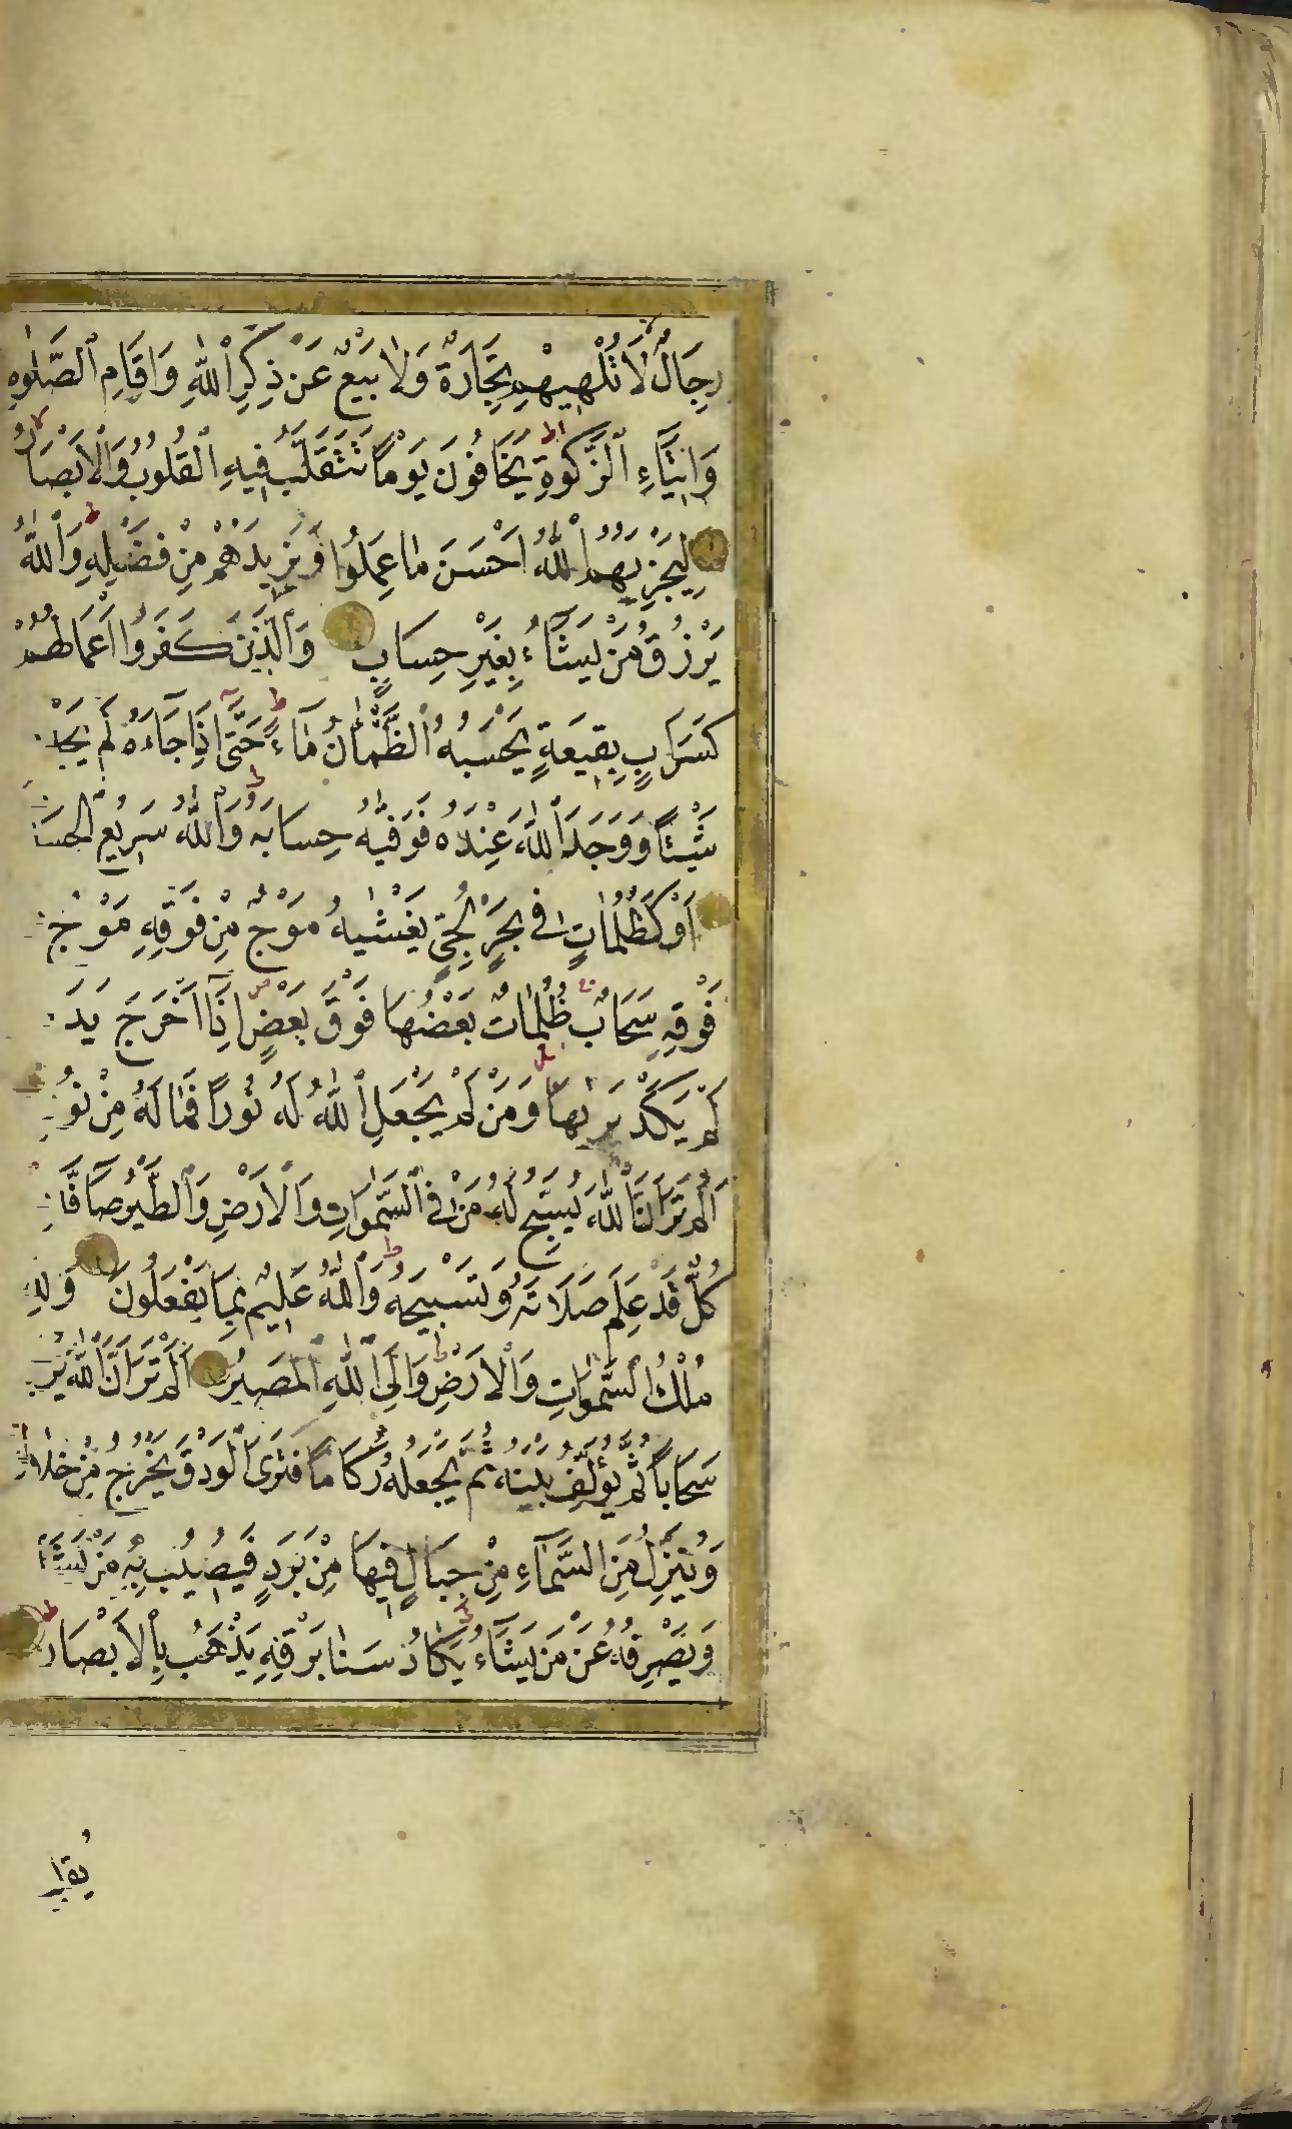 رِجَالٌ لَا تُلْهِيهِمْ تِجَارَةٌ وَلَا بَيْعٌ عَنْ ذِكْرِ ٱللَّهِ وَاِقَامِ ٱلصَّلٰوةِ
وَاِيتَآءِ ٱلزَّكٰوةِ يَخَافُونَ يَوْمًا تَتَقَلَّبُ فِيهِ ٱلْقُلُوبُ وَٱلْاَبْصَارُ
لِيَجْزِيَهُمُ ٱللَّهُ اَحْسَنَ مَا عَمِلُوا وَيَزِيدَهُمْ مِنْ فَضْلِهِ وَٱللَّهُ
يَرْزُقُ مَنْ يَشَآءُ بِغَيْرِ حِسَابٍ وَٱلَّذِينَ كَفَرُوا اَعْمَالُهُمْ
كَسَرَابٍ بِقِيعَةٍ يَحْسَبُهُ ٱلظَّمْاٰنُ مَآءً حَتّٰى اِذَا جَآءَهُ لَمْ يَجِدْ
شَيْئًا وَوَجَدَ ٱللَّهَ عِنْدَهُ فَوَفّٰيهُ حِسَابَهُ وَٱللَّهُ سَرِيعُ ٱلْحِسَا
اَوْ كَظُلُمَاتٍ فِى بَحْرٍ لُجِّىٍّ يَغْشٰيهُ مَوْجٌ مِنْ فَوْقِهِ مَوْجٌ
فَوْقِهِ سَحَابٌ ظُلُمَاتٌ بَعْضُهَا فَوْقَ بَعْضٍ اِذَآ اَخْرَجَ يَدَ
لَمْ يَكَدْ يَرٰيهَا وَمَنْ لَمْ يَجْعَلِ ٱللَّهُ لَهُ نُورًا فَمَا لَهُ مِنْ نُورٍ
اَلَمْ تَرَ اَنَّ ٱللَّهَ يُسَبِّحُ لَهُ مَنْ فِى ٱلسَّمٰوَاتِ وَٱلْاَرْضِ وَٱلطَّيْرُ صَآفَّاتٍ
كُلٌّ قَدْ عَلِمَ صَلَاتَهُ وَتَسْبِيحَهُ وَٱللَّهُ عَلِيمٌ بِمَا يَفْعَلُونَ وَلِلّٰهِ
مُلْكُ ٱلسَّمٰوَاتِ وَٱلْاَرْضِ وَاِلَى ٱللَّهِ ٱلْمَصِيرُ اَلَمْ تَرَ اَنَّ ٱللَّهَ يُزْ
سَحَابًا ثُمَّ يُؤَلِّفُ بَيْنَهُ ثُمَّ يَجْعَلُهُ رُكَامًا فَتَرَى ٱلْوَدْقَ يَخْرُجُ مِنْ خِلَالِهِ
وَيُنَزِّلُ مِنَ السَّمَآءِ مِنْ جِبَالٍ فِيهَا مِنْ بَرَدٍ فَيُصِيبُ بِهِ مَنْ يَشَآ
وَيَصْرِفُهُ عَنْ مَنْ يَشَآءُ يَكَادُ سَنَا بَرْقِهِ يَذْهَبُ بِالْاَبْصَارِ
يُقَلِّ